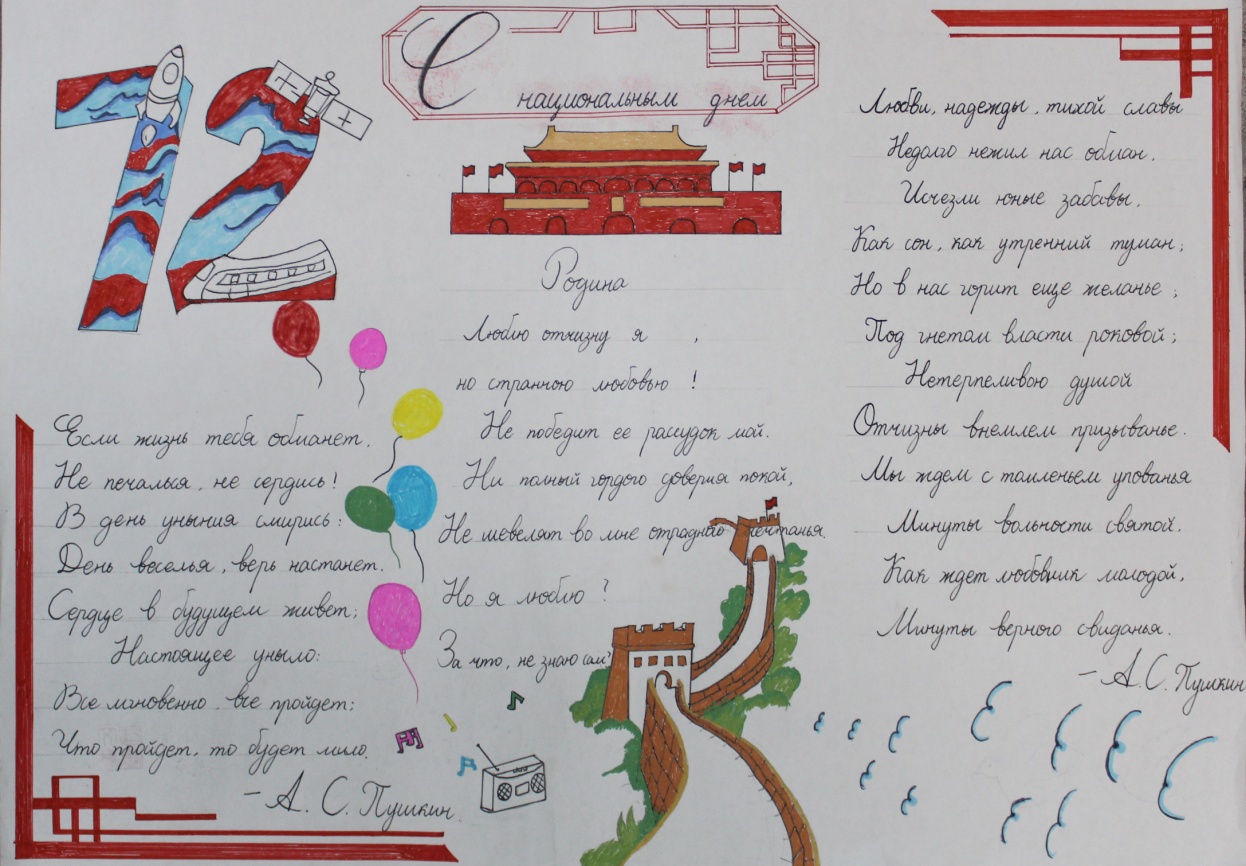 72
С национальным днем
Если жизнь тебя обманет,
Не печалься, не сердись!
В день уныния смирись:
День веселья, верь настанет.
Сердце в будущем живет;
Настоящее уныло:
Все мгновенно, все пройдет;
Что пройдет, то будет мило.
- А. С. Пушкин.
Родина
Люблю отчизну я ,
но странною любовью !
Не победит ее рассудок мой.
Ни полный гордого доверия покой,
Не шевелят во мне отрадного мечтанья.
Но я люблю ?
За что, не знаю сам?
Любви, надежды, тихой славы
Недолго нежил нас обман.
Исчезли юные забавы,
Как сон, как утренний туман;
Но в нас горит еще желанье ;
Под гнетом власти роковой;
Нетерпеливою душой
Отчизны внемлем призыванье.
Мы ждем с томленьем упованья
Минуты вольности святой.
Как ждет любовник молодой,
Минуты верного свиданья.
- А. С. Пушкин